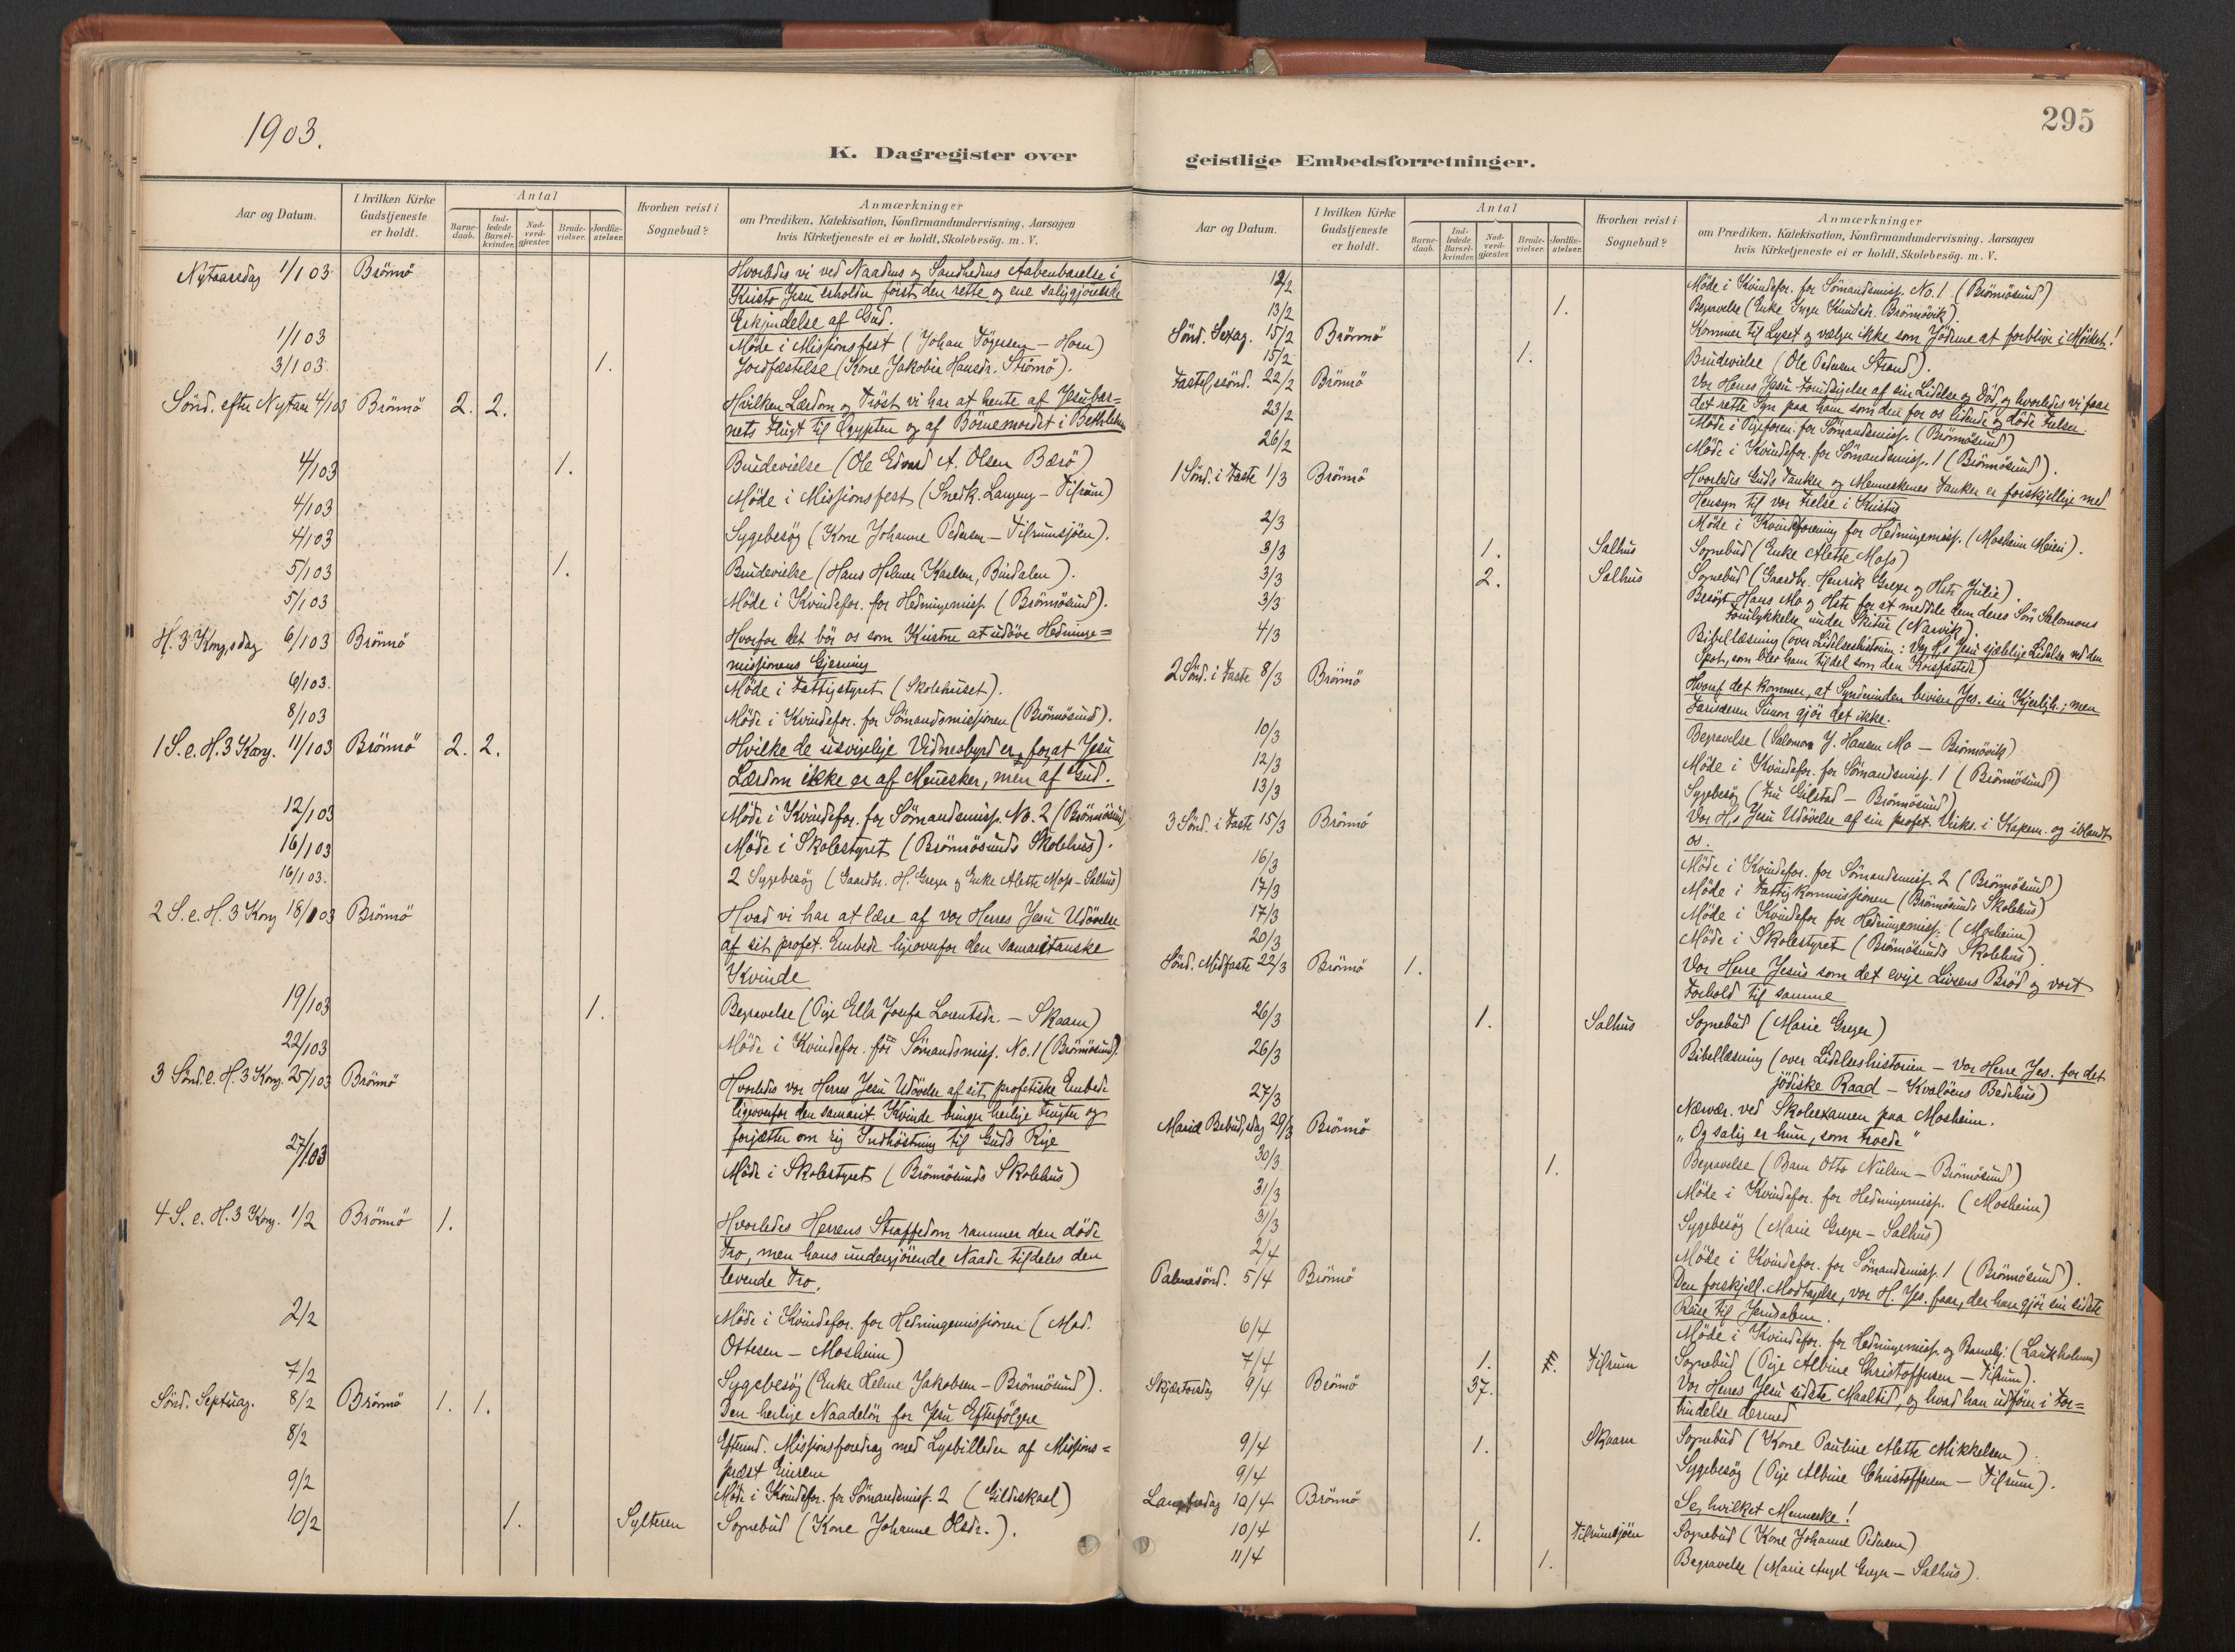 1903.
295
K. Dagregister over geistlige Embedsforretninger.
Aar og Datum.
I hvilken Kirke Gudstjeneste er holdt.
Antal
Barne-daab.
Ind-ledede Barsel-kvinder.
Nad-verd-gjæster.
Brude-vielser.
Jordfæ-stelser.
Hvorhen reist i Sognebud?
Anmærkninger
om Prædiken, Katekisation, Konfirmandundervisning, Aarsagen
hvis Kirketjeneste ei er holdt, Skolebesög. m. V.
Nytaarsdag 1/1 03 Brönnö Hvorledes vi ved Naadens og Sandhedens Aabenbarelse i
Kristo Jesu erholder först den rette og ene saliggjörende
Erkjendelse af Gud.
1/1 03 Möde i Missionsfest (Johan - Horn)
3/1 03. 1. Jordfæstelse (Kone Jakobie Hansdr. Strömö).
Sönd. efter Nytaar 4/1 03 Brönnö 2. 2. Hvilken Lærdom og Tröst vi har at hente af Jesubar-
nets Flugt til Egypten og af Börnemordet i Bethlehem
4/1 03 1. Brudevielse (Ole Edvard A. Olsen Bærö)
4/1 03 Möde i Missionsfest (Snedk. Langeng - Tilrum)
4/1 03 Sygebesög (Kone Johanne Pedersen - Tilrumsjöen).
5/1 03 1. Brudevielse (Hans Helmer Karlsen, Bindalen).
5/1 03 Möde i Kvindefor. for Hedningemiss. (Brönnösund).
H. 3 Kong.sdag 6/1 03 Brönnö Hvorfor det bör os som Kristne at udöve Hedninge=
missionens Gjerning
6/1 03. Möde i Fattigstyret (Skolehuset).
8/1 03 Möde i Kvindefor. for Sömandsmissionen (Brönnösund).
1 S. e. H. 3 Kong. 11/1 03 Brönnö 2. 2. Hvilke de usvigelige Vidnesbyrd er, for at Jesu
Lærdom ikke er af Mennesker, men af Gud.
12/1 03 Möde i Kvindefor. for Sömandsmiss. No. 2 (Brönnösund)
16/1 03 Möde i Skolestyret (Brönnösunds Skolehus).
16/1 03. 2 Sygebesög (Gaardbr. H. Greger og Enke Alette Moss - Salhus)
2 S. e. H. 3 Kong 18/1 03 Brönnö Hvad vi har at lære af vor Herres Jesu Udövelse
af sit profet. Embede ligeovenfor den samaritanske
Kvinde
19/1 03 1. Begravelse (Pige Ella Josefa Lorentsdr. - Skaarn)
22/1 03 Möde i Kvindefor. for Sömandsmiss. No. 1 (Brönnösund).
3 Sönd. e. H. 3 Kong. 25/1 03 Brönnö Hvorledes vor Herres Jesu Udövelse af sit profetiske Embede
ligeovenfor den samarit. Kvinde bringer herlige Frugter og
forjætter om rig Indhöstning til Guds Rige
27/1 03 Möde i Skolestyret (Brönnösunds Skolehus)
4 S. e. H. 3 Kong. 1/2 Brönnö 1. Hvorledes Herrens Straffedom rammer den döde
Tro, men hans undergjörende Naade tildeles den
levende Tro.
2/2 Möde i Kvindefor. for Hedningemissionen (Mad.
Ottesen - Mosheim)
7/2 Sygebesög (Enke Helene Jakobsen - Brönnösund).
Sönd. Septuag. 8/2 Brönnö 1. 1. Den herlige Naadelön for Jesu Efterfölgere
8/2 Efterm. Missionsforedrag med Lysbilleder af Missions=
præst Einrem
9/2 Möde i Kvindefor. for Sömandsmiss. 2 (Gildeskaal)
10/2 1. Sylteren Sognebud (Kone Johanne Olsdr.).
Aar og Datum.
I hvilken Kirke Gudstjeneste er holdt.
Antal
Barne-daab.
Ind-ledede Barsel-kvinder.
Nad-verd-gjæster.
Brude-vielser.
Jordfæ-stelser.
Hvorhen reist i Sognebud?
Anmærkninger
om Prædiken, Katekisation, Konfirmandundervisning, Aarsagen
hvis Kirketjeneste ei er holdt, Skolebesög. m. V.
12/2 Möde i Kvindefor. for Sömandsmiss. No. 1 (Brönnösund)
13/2 1. Begravelse (Enke Inger Knudsdr. Brönnövik).
Sönd. Sexag. 15/2 Brönnö Kommer til Lyset og vælger ikke som Jöderne at forblive i Mörket!
15/2 1. Brudevielse (Ole Pedersen Strand).
Fastel.ssönd. 22/2 Brönnö Vor Herres Jesu Forudsigelse af sin Lidelse og Död, og hvorledes vi faar
det rette Syn paa ham som den for os lidende og döde Frelser.
23/2 Möde i Pigeforen. for Sömandsmiss. (Brönnösund)
26/2 Möde i Kvindefor. for Sömandsmiss. 1 (Brönnösund).
1 Sönd. i Faste 1/3 Brönnö Hvorledes Guds Tanker og Menneskenes Tanker er forskjellige med
Hensyn til vor Frelse i Kristus
2/3 Möde i Kvindeforening for Hedningemiss. (Mosheim Meieri).
3/3 1. Salhus Sognebud (Enke Alette Moss)
3/3 2. Salhus Sognebud (Gaardbr. Henrik Greger og Hstr. Julie).
3/3 Besögt Hans Mo og Hstr. for at meddele dem deres Sön Salomons
Forulykkelse under Skitur (Narvik).
4/3 Bibellæsning (over Lidelseshistorien: Vor H.s Jesu sjælelige Lidelse ved den
Spot, som blev ham tildel som den Korsfæstede)
2 Sönd. i Faste 8/3 Brönnö Hvoraf det kommer, at Synderinden beviser Jes. sin Kjærligh.; men
Farisæeren Simon gjör det ikke.
10/3 Begravelse (Salomon J. Hansen Mo - Brönnövik)
12/3 Möde i Kvindefor. for Sömandsmiss. 1 (Brönnösund)
13/3 Sygebesög (Fru Gilstad - Brönnösund)
3 Sönd. i Faste 15/3 Brönnö Vor H.s Jesu Udövelse af sin profet. Virks. i Kapern. og iblandt
os.
16/3 Möde i Kvindefor. for Sömandsmiss. 2 (Brönnösund)
17/3 Möde i Fattigkommissionen (Brönnösunds Skolehus)
17/3 Möde i Kvindefor for Hedningemiss. (Mosheim)
20/3 Möde i Skolestyret (Brönnösunds Skolehus).
Sönd. Midfaste 22/3 Brönnö 1. Vor Herre Jesus som det evige Livsens Bröd og vort
Forhold til samme
26/3 1. Salhus Sognebud (Marie Greger)
26/3 Bibellæsning (over Lidelseshistorien - Vor Herre Jes. for det
jödiske Raad - Kvalöens Bedehus)
27/3 Nærvær. ved Skoleexamen paa Mosheim.
Mariæ Bebud.sdag 29/3 Brönnö "Og salig er hun, som troede"
30/3 1. Begravelse (Barn Otto Nielsen - Brönnösund)
31/3 Möde i Kvindefor. for Hedningemiss. (Mosheim)
31/3 Sygebesög (Marie Greger - Salhus)
2/4 Möde i Kvindefor. for Sömandsmiss. 1 (Brönnösund).
Palmesönd. 5/4 Brönnö Den forskjell. Modtagelse, vor H. Jes. faar, der han gjör sin sidste
Reise til Jerusalem.
6/4 Möde i Kvindefor. for Hedningemiss. og Barnehj. (Laukholmen)
7/4 1. Tilrum Sognebud (Pige Albine Christoffersen - Tilrum).
Skjærtorsdag 9/4 Brönnö 37. Vor Herres Jesu sidste Maaltid, og hvad han udförer i For=
bindelse dermed
9/4 1. Skaarn Sognebud (Kone Pauline Alette Mikkelsen)
9/4 Sygebesög (Pige Albine Christoffersen - Tilrum).
Langfredag 10/4 Brönnö Se, hvilket Menneske!
10/4 1. Tilrumsjöen Sognebud (Kone Johanne Pedersen)
11/4 1. Begravelse (Marie Angel Greger - Salhus).